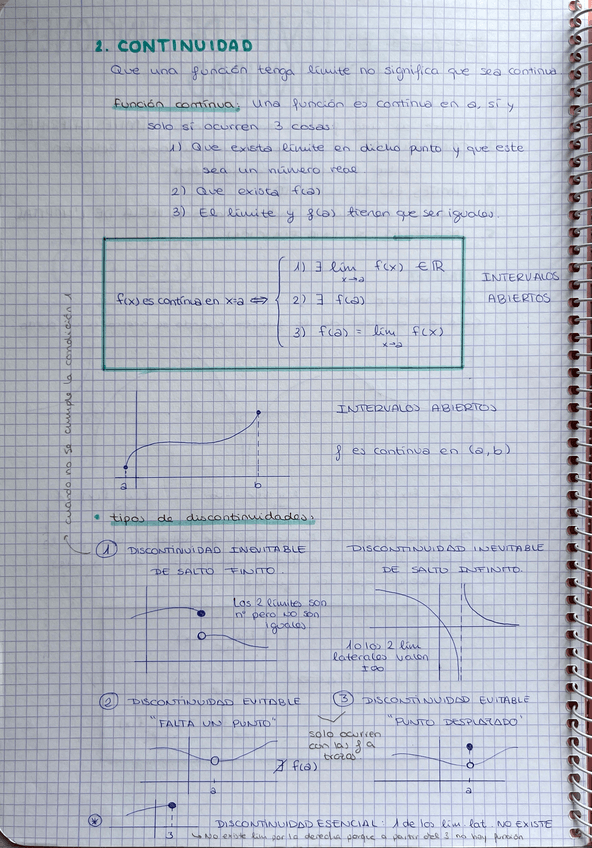 2. CONTINUIDAD
Que una función tenga límite no significa que sea continua
Función continua: una función es continua en a, sí y
solo si ocurren 3 cosas
1) Que exista límite en dicho punto y que este
sea un número real
2) Que exista f(a)
3) El límite y f(a) tienen que ser iguales.
f(x) es continua en x=a ⇔
1) ∃ lim f(x) ∈ ℝ
x→a
2) ∃ f(a)
3) f(a) = lim f(x)
x→a
INTERVALOS
ABIERTOS
cuando no se cumple la condición 1
INTERVALOS ABIERTOS
f es continua en (a,b)
a
b
• tipos de discontinuidades:
1 DISCONTINUIDAD INEVITABLE
DE SALTO FINITO.
Los 2 límites son
nº pero no son
iguales
DISCONTINUIDAD INEVITABLE
DE SALTO INFINITO.
1 o los 2 lim
laterales valen
±∞
2 DISCONTINUIDAD EVITABLE
"FALTA UN PUNTO"
∄ f(a)
a
3 DISCONTINUIDAD EVITABLE
"PUNTO DESPLAZADO"
solo ocurren
con las f a
trozos
a
*
3
DISCONTINUIDAD ESENCIAL: 1 de los lim. lat. NO EXISTE
↳ No existe lim por la derecha porque a partir del 3 no hay función